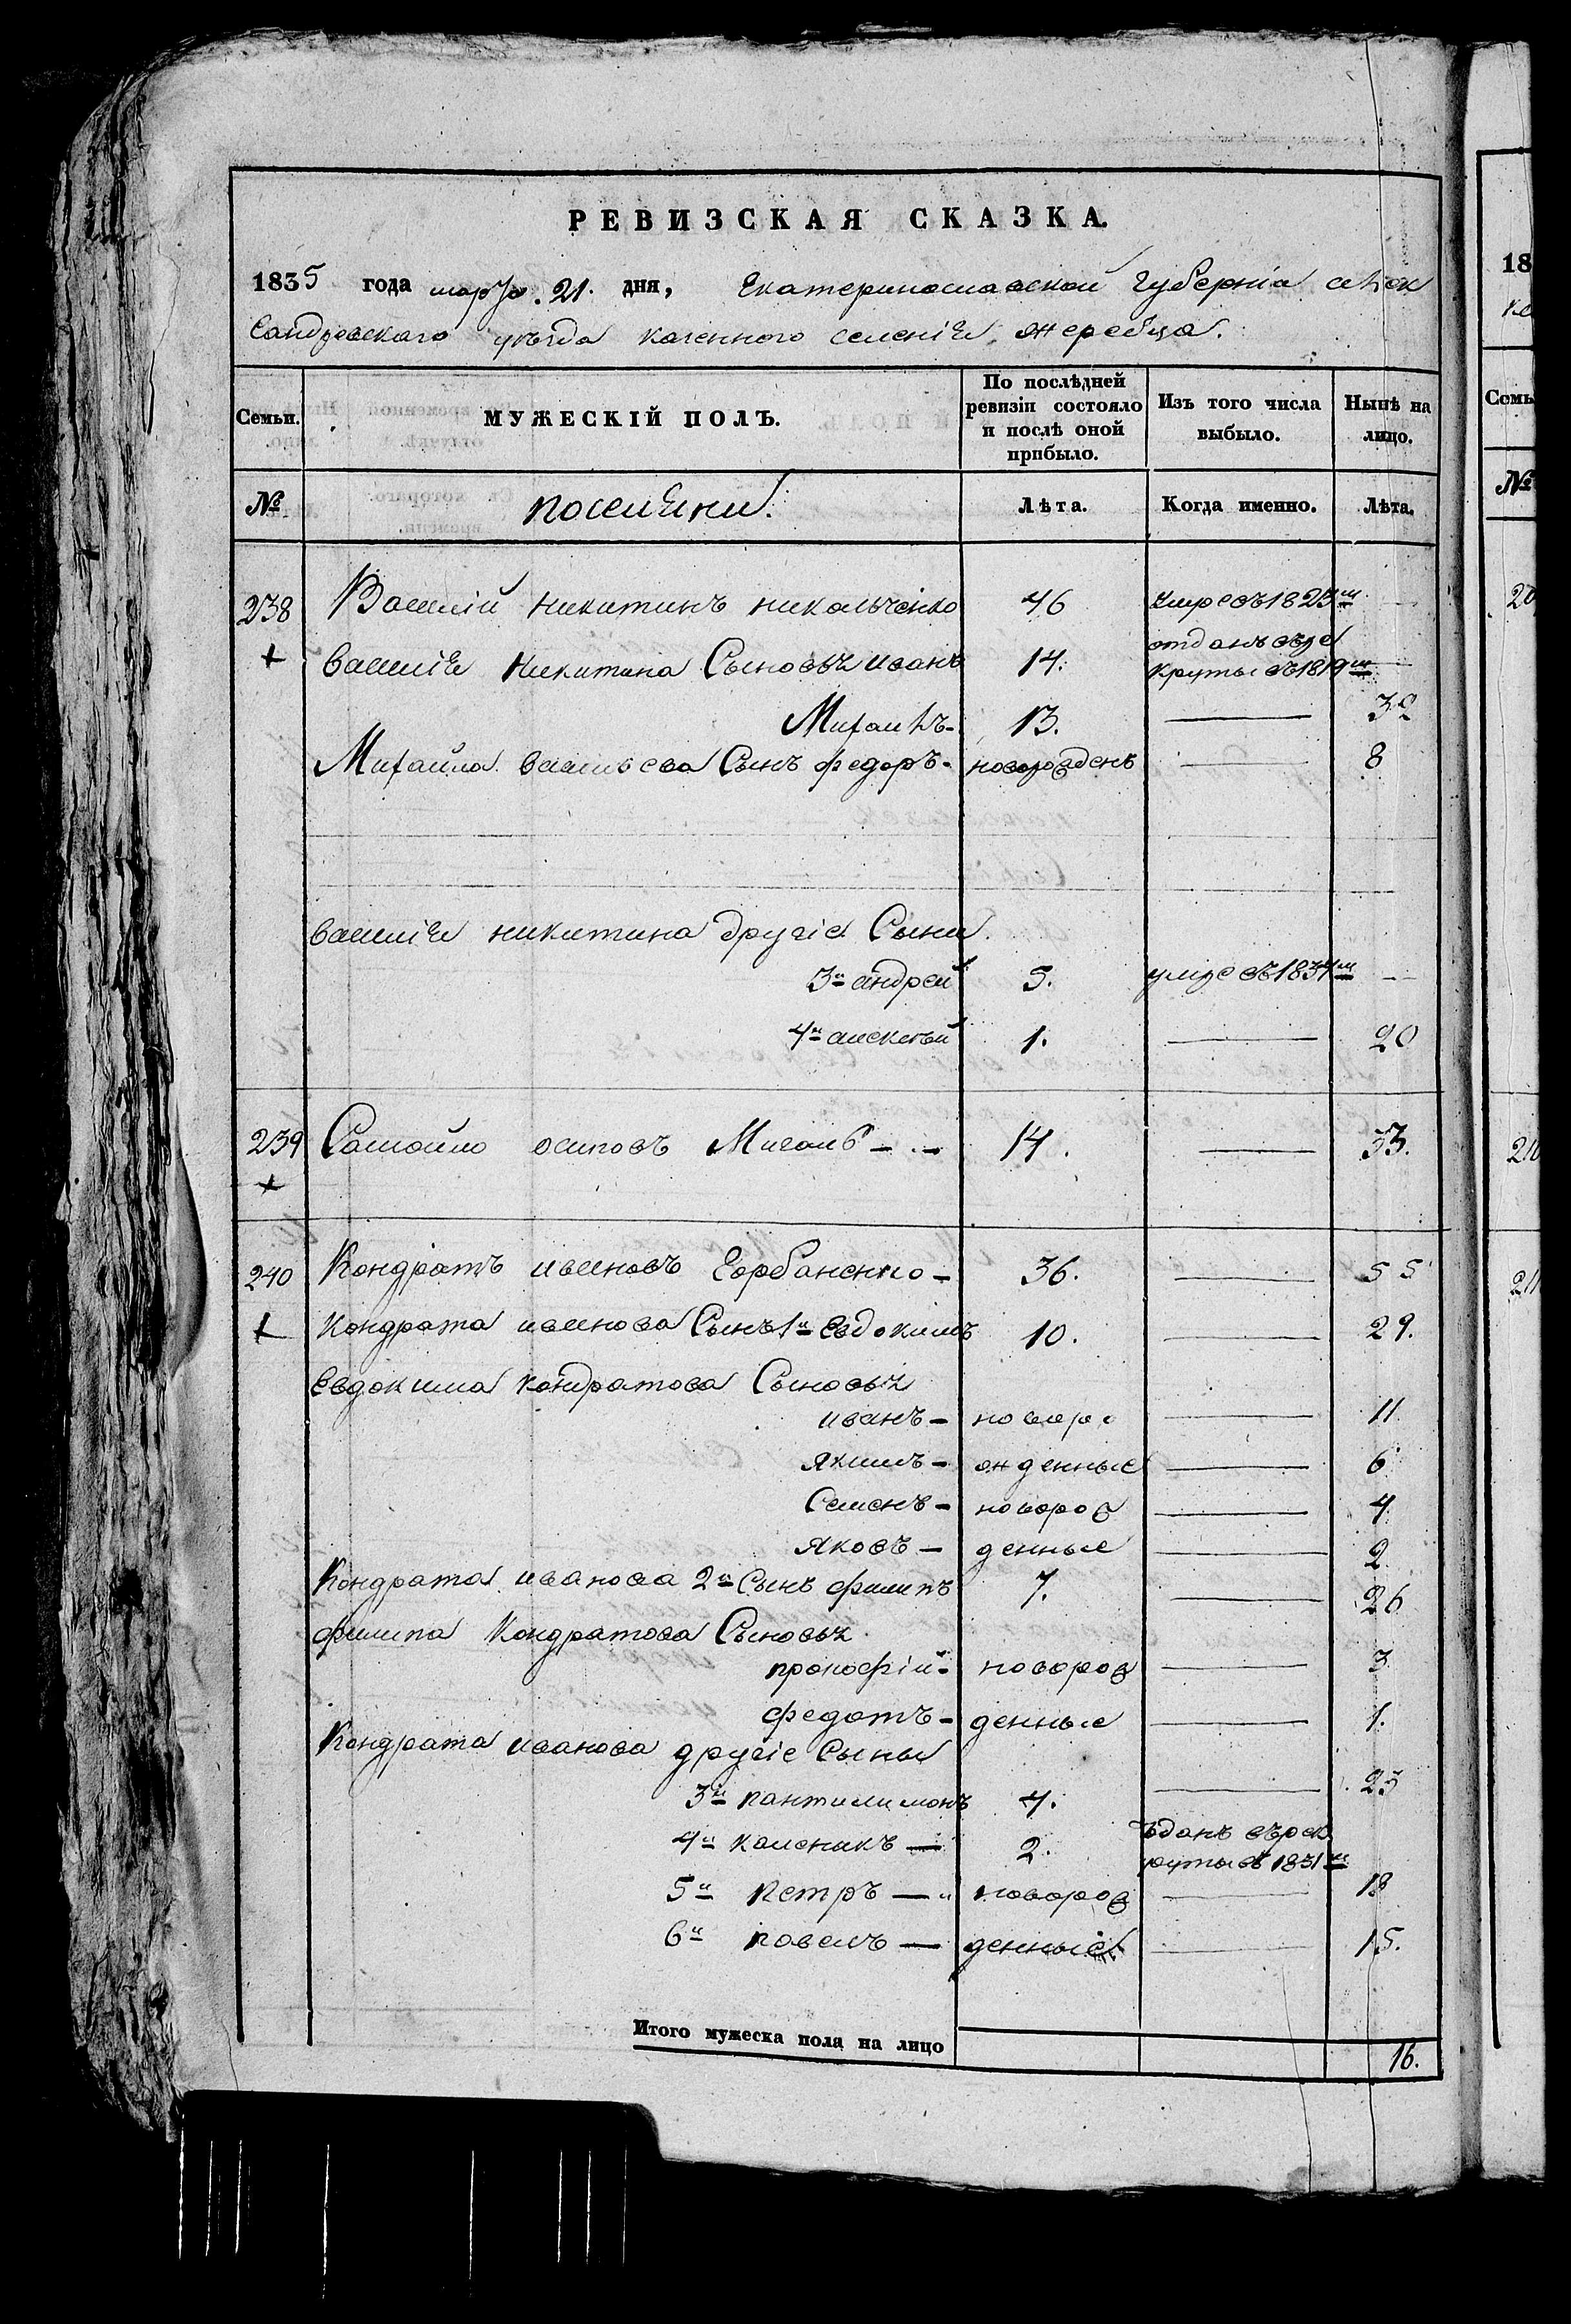 РЕВИЗСКАЯ СКАЗКА.
1835 года марта 21. дня, Екатеринославской Губерніи Алек
сандровскаго уезда казенного селенія жеребца.
Семьи. МУЖЕСКІЙ ПОЛЪ. По послѣдней ревизіи состояло и послѣ оной прибыло. Изъ того числа выбыло. Нынѣ на лицо.
№ поселяни. Лѣта. Когда именно. Лѣта.
238 Василій никитинъ никольченко 46 умре въ 1823м
Василія Никитина Сыновья иванъ 14. отданъ въ ре
круты въ 1819м
Михаилъ 13. 32
Михайла васильева Сынъ федоръ новорожденъ 8
василія никитина другіе Сыни
3й андрей 5. умре въ 1834м
4й алексей 1. 20
239 Самойло осиповъ 14. 33.
240 Кондратъ ивановъ Горбаненко 36. 55
Кондрата иванова Сынъ 1й Евдокимъ 10. 29.
Евдокима кондратова Сыновья
иванъ новоро 11
якимъ жденные 6
Семенъ новорож 4
яковъ денные 2
Кондрата иванова 2й Сынъ филипъ 7. 26
филипа Кондратова Сыновья
прокофій новорож 3
федотъ денные 1.
Кондрата иванова другіе Сыны
3й пантилимонъ 4. 23
4й каленикъ 2. ъданъ въ рек
руты въ 1831м
5й петръ новорож 18
6й павелъ денные 15.
Итого мужеска пола на лицо 16.
18
Семь
№